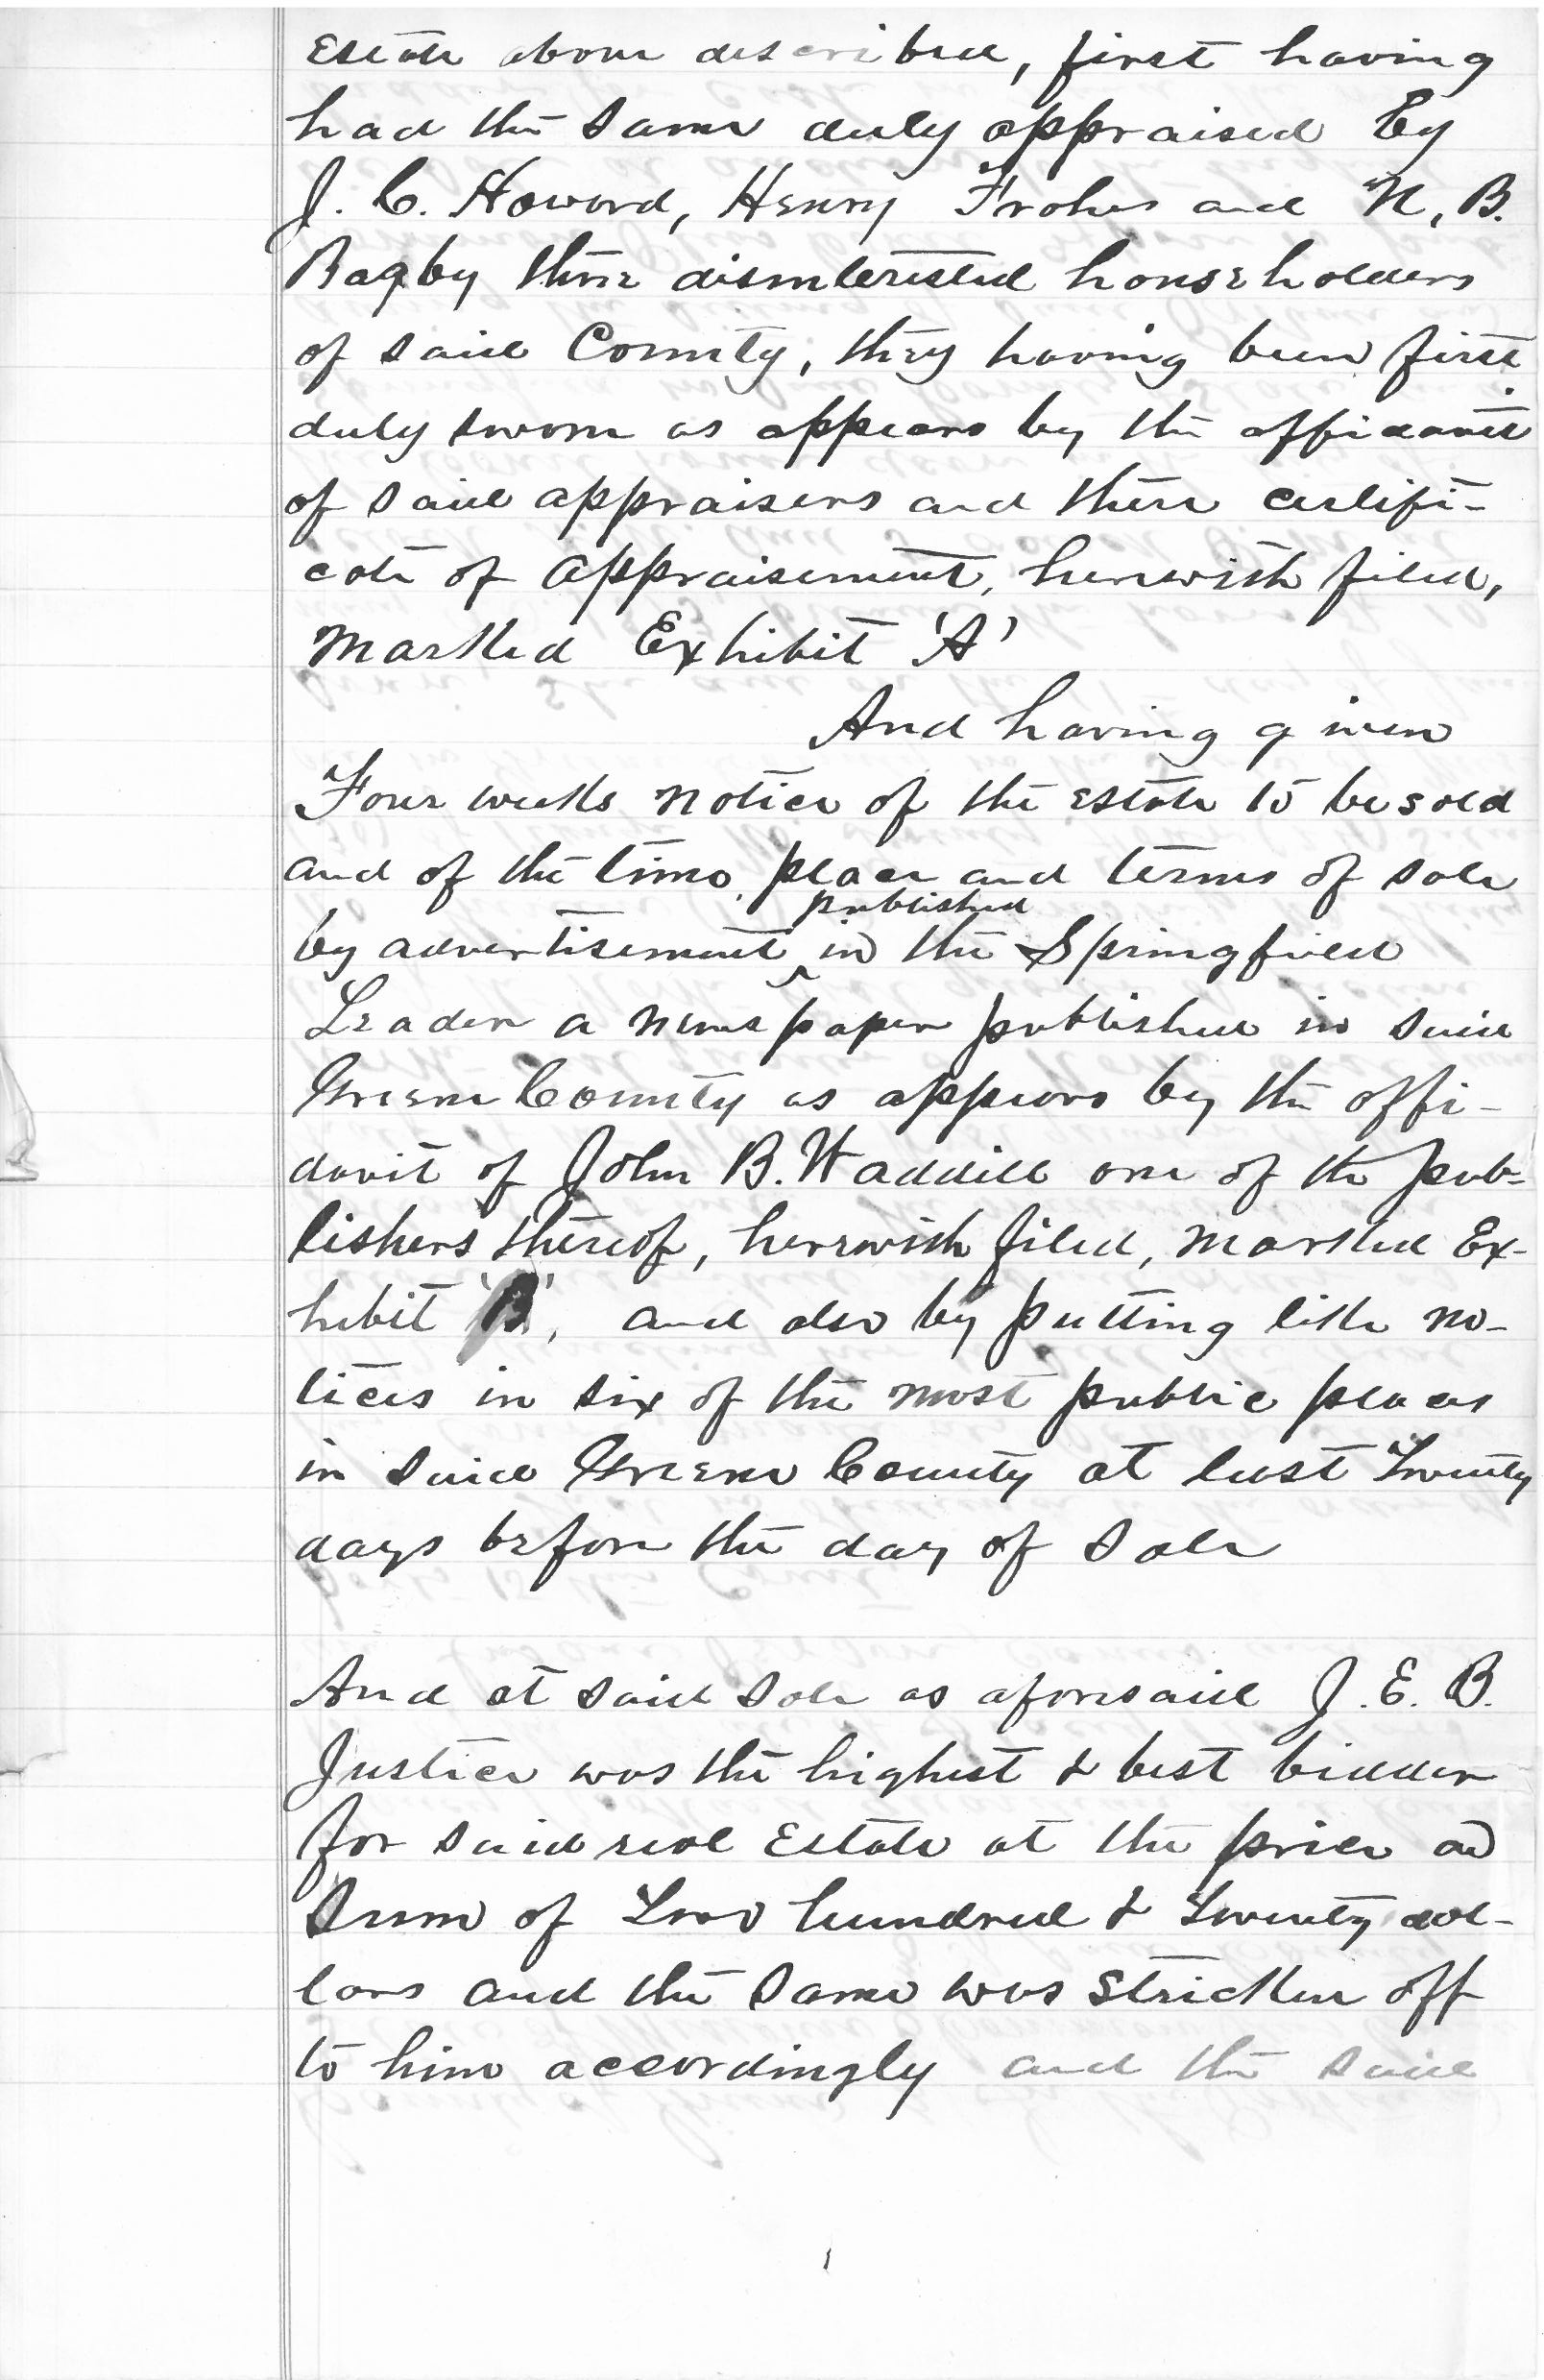 Estate above described, first having
had the same duly appraised by
J. C. Howard, Henry Frohes and N. B.
Bagby three disinterested householders
of said County, they having been first
duly sworn as appears by the affidavit
of said appraisers and there certifi-
cate of appraisement, herewith filed,
marked Exhibit 'A'
And having given
Four weeks notice of the estate to be sold
and of the time, place and terms of sale
published
by advertisement in the Springfield
Leader a newspaper published in said
Greene County as appears by the affi-
davit of John B. Waddill one of the pub-
lishers thereof, herewith filed, marked Ex-
hibit 'B', and also by putting like no-
tices in six of the most public places
in said Greene County at least Twenty
days before the day of sale
And at said sale as aforesaid J. E. B.
Justice was the highest & best bidder
for said real Estate at the price and
sum of Two hundred & Twenty dol-
lars and the same was stricken off
to him accordingly and the said